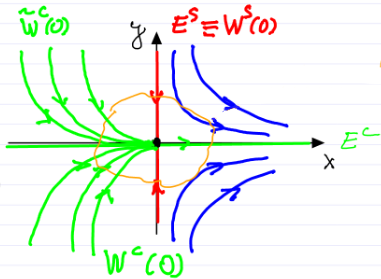 W̃ᶜ(0)
y
Eˢ ≡ Wˢ(0)
Eᶜ
x
Wᶜ(0)